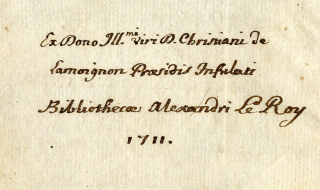 Ex Dono Ill.me viri D. Chrisiani de
Lamoignon Præsidis Infulati
Bibliothecæ Alexandri Le Roy
1711.